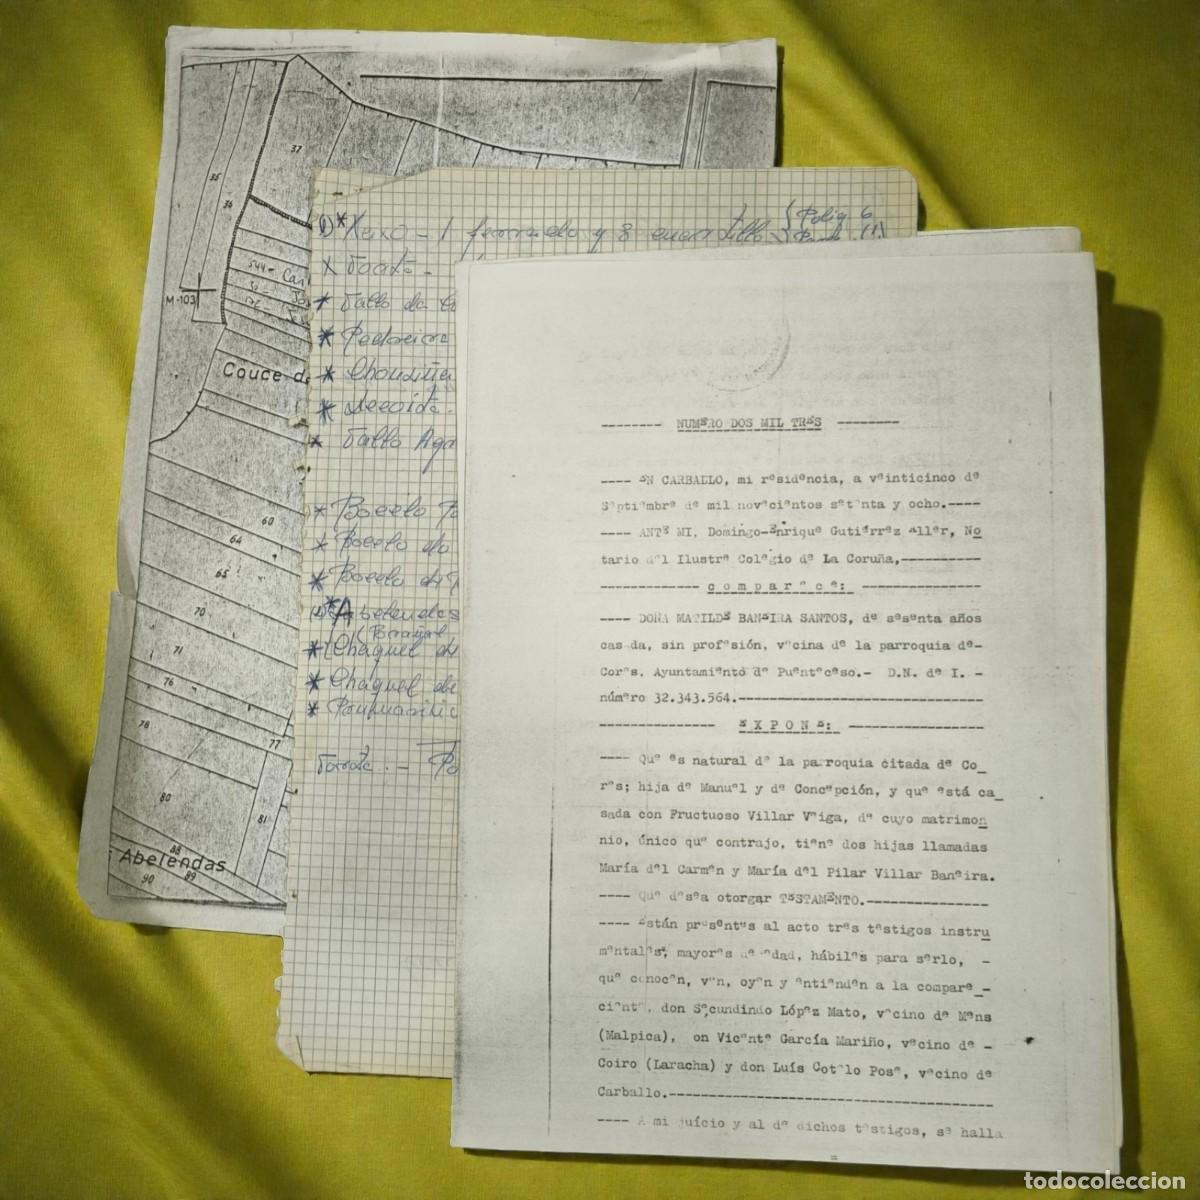 37
35
36
M-103
Couce d
60
64
65
70
71
76
78
77
80
81
88
Abelendas
90 89
1) * Xeixo - 1 ferrado y 8 cuartillo { Polig 6
* Tallo da
* Pedreira
* Tallo Aga
* Boedo do
* Abelendas
* Chaquel de
* Chaquel de
-------- NUMERO DOS MIL TRES --------
---- EN CARBALLO, mi residencia, a veinticinco de
Septiembre de mil novecientos setenta y ocho.----
---- ANTE MI, Domingo-Enrique Gutiérrez Aller, No
tario del Ilustre Colegio de La Coruña,----------
-------------- comparece: --------------
---- DOÑA MATILDE BANEIRA SANTOS, de sesenta años
casada, sin profesión, vecina de la parroquia de-
Cores, Ayuntamiento de Puenteceso.- D.N. de I. -
número 32.343.564.-----------------------------
---------------- EXPONE: ----------------
---- Que es natural de la parroquia citada de Co_
res; hija de Manuel y de Concepción, y que está ca_
sada con Fructuoso Villar Veiga, de cuyo matrimon
nio, único que contrajo, tiene dos hijas llamadas
María del Carmen y María del Pilar Villar Baneira.
---- Que desea otorgar TESTAMENTO.---------------
---- Están presentes al acto tres testigos instru
mentales, mayores de edad, hábiles para serlo, -
que conocen, ven, oyen y entienden a la compare_-
ciente, don Secundindo López Mato, vecino de Mens
(Malpica), on Vicente García Mariño, vecino de -
Coiro (Laracha) y don Luís Cotelo Pose, vecino de
Carballo.----------------------------------------
---- A mi juício y al de dichos testigos, se halla
todocoleccion